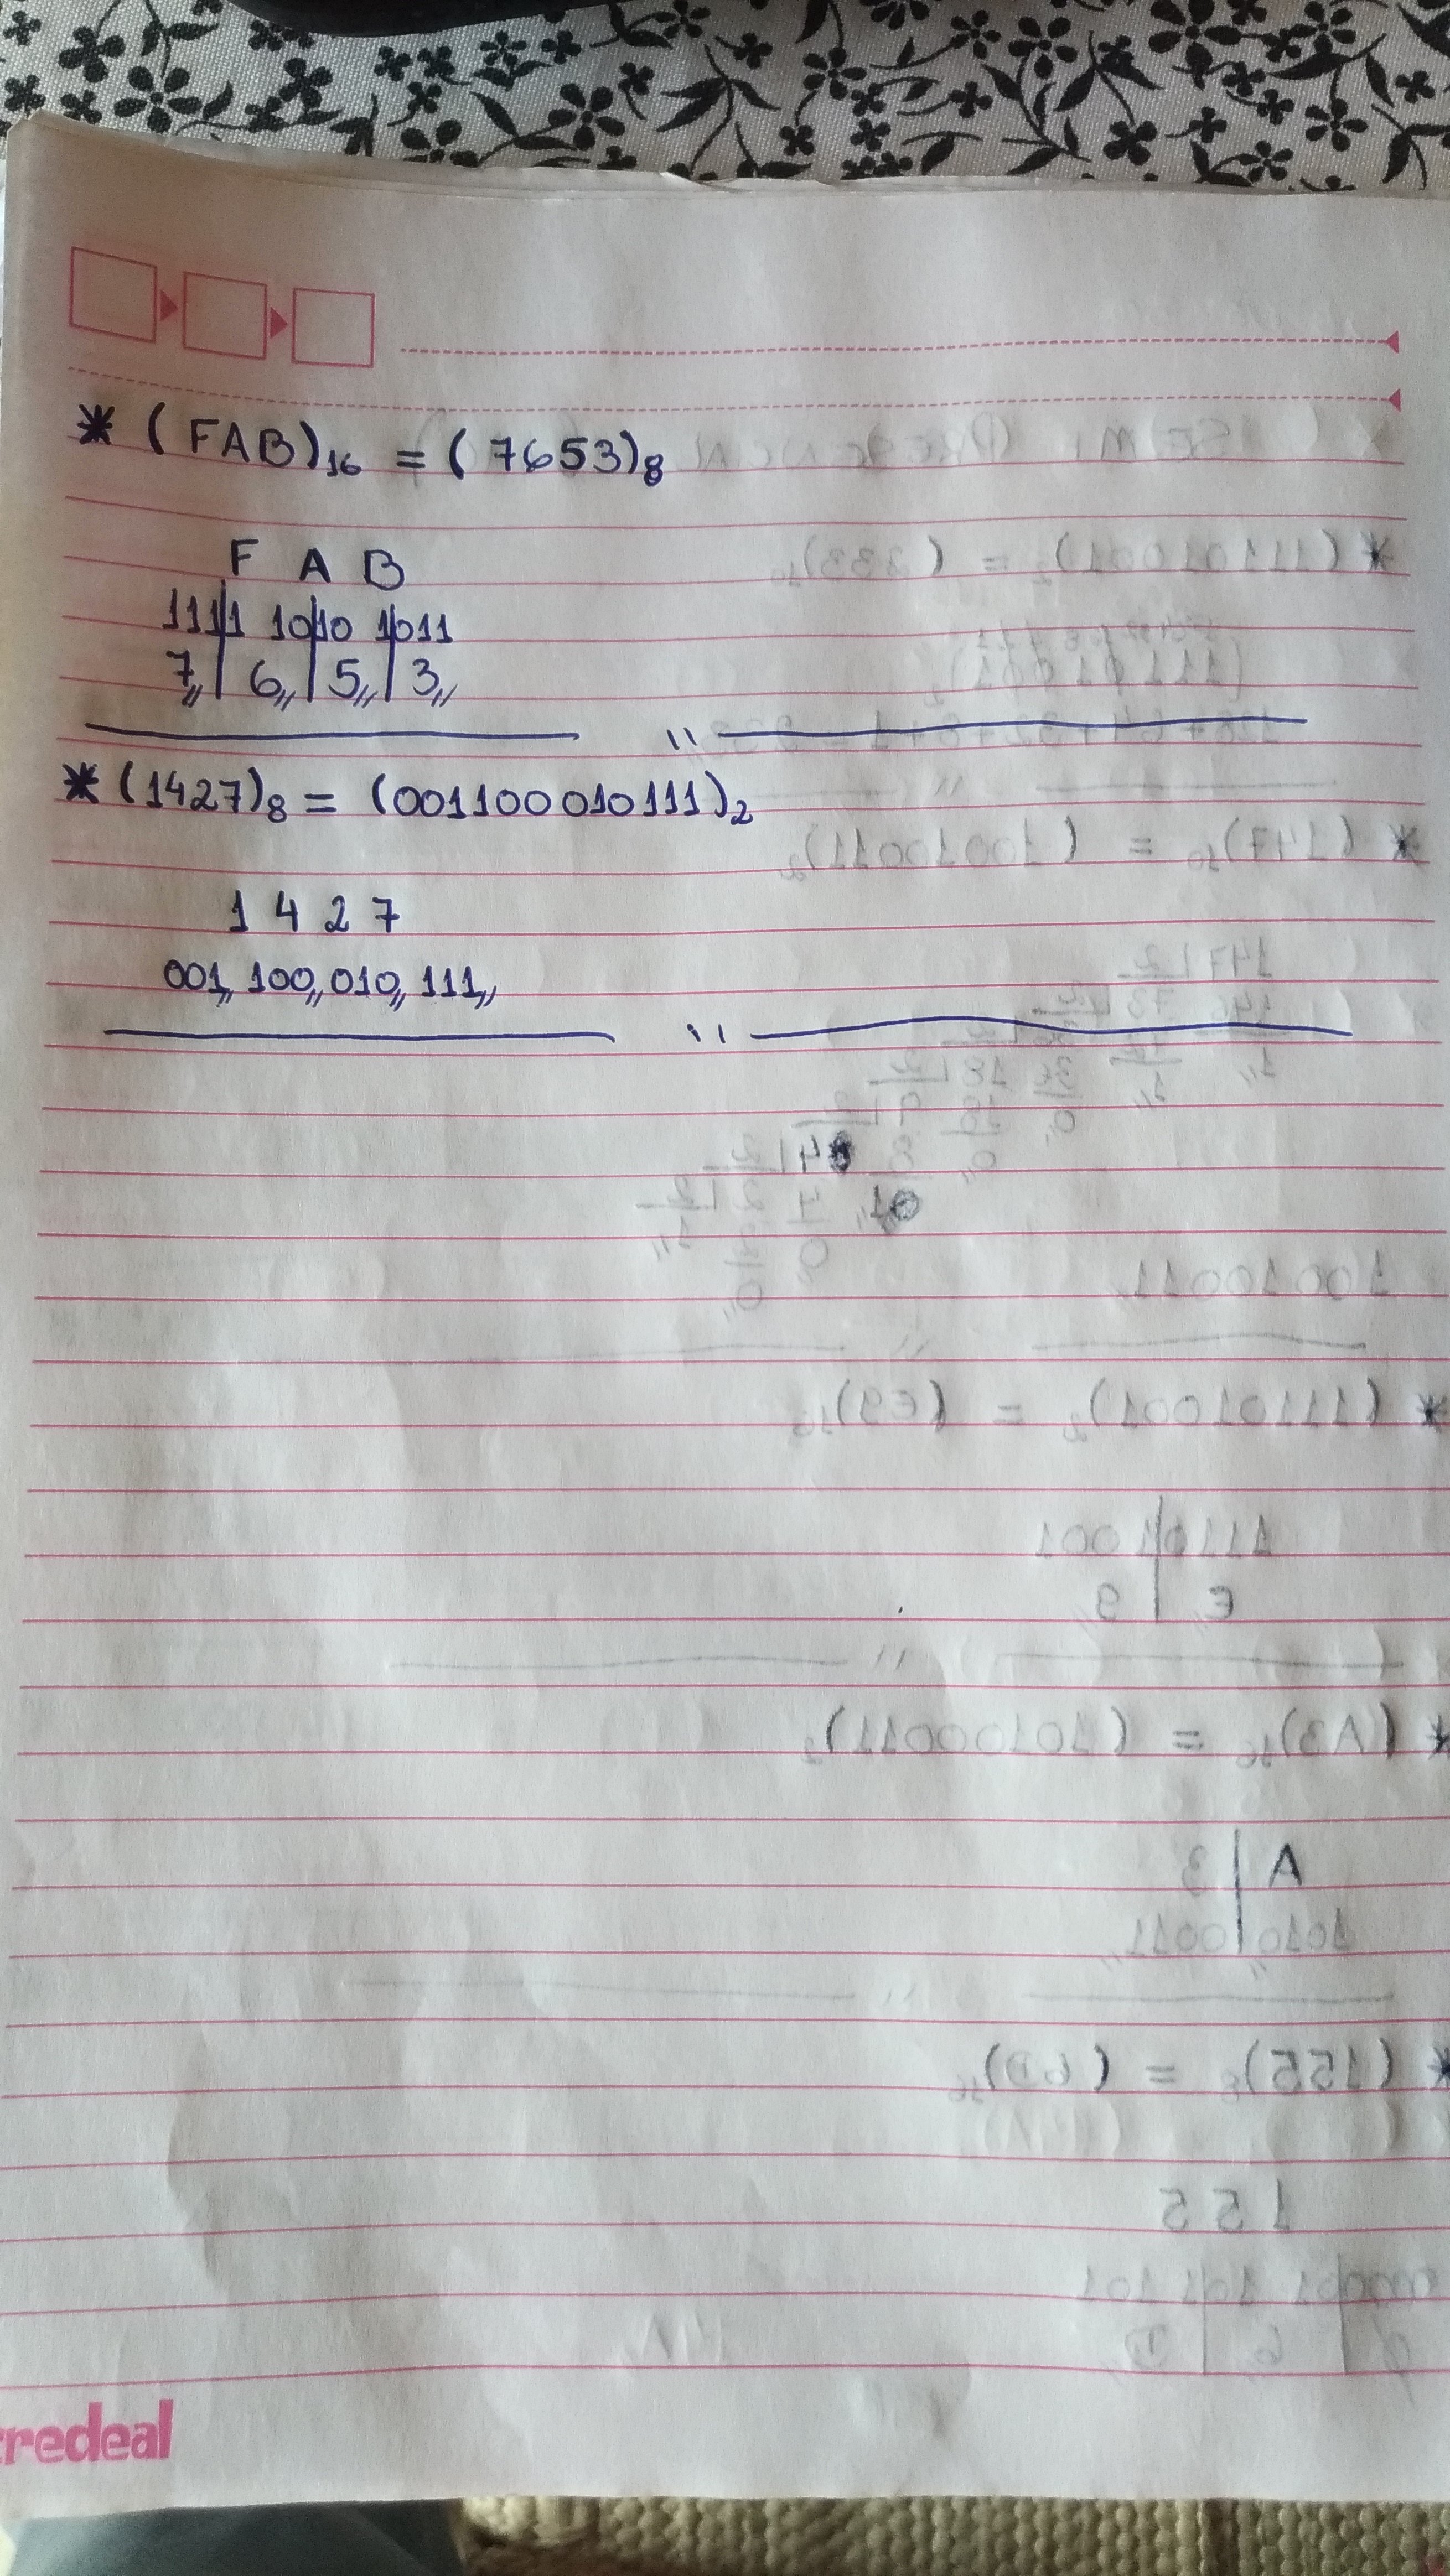 * (FAB)₁₆ = (7653)₈
F A B
1111 1010 1011
7,, 6,, 5,, 3,,
"
* (1427)₈ = (001100010111)₂
1 4 2 7
001,, 100,, 010,, 111,,
"
credeal